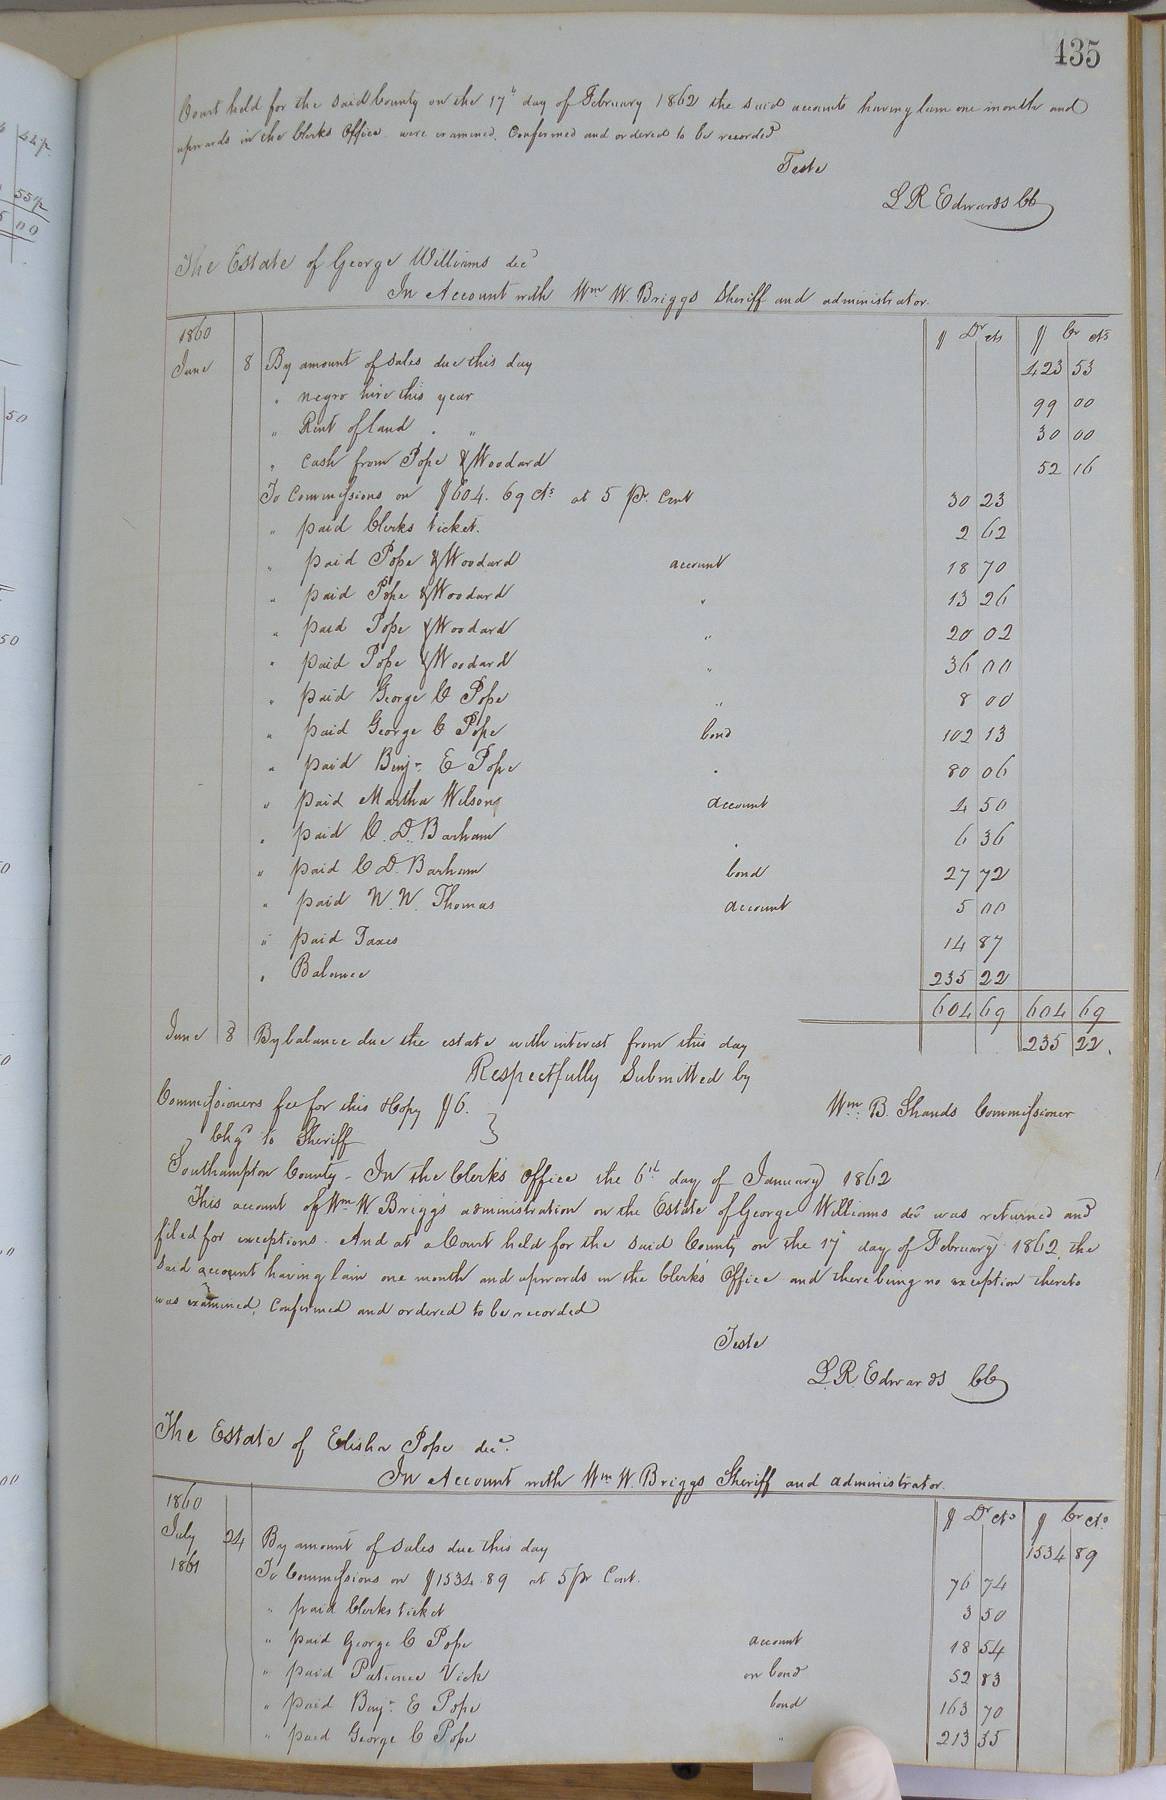 435
Court held for the said County on the 17th day of February 1862 the said accounts having lain one month and
upwards in the Clerks Office were examined, Confirmed and ordered to be recorded
Teste
L R Edwards CC
The Estate of George Williams decd
In Account with Wm W. Briggs Sheriff and administrator.
1860 $ Dr cts $ Cr cts
June 8 By amount of sales due this day 423 53
" negro hire this year 99 00
" Rent of land " " 30 00
" cash from Pope & Woodard 52 16
To Commissions on $604.69 cts at 5 pr. Cent 30 23
" paid Clerks ticket. 2 62
" paid Pope & Woodard account 18 70
" paid Pope & Woodard " 13 26
" paid Pope & Woodard " 20 02
" paid Pope & Woodard " 36 00
" paid George C Pope " 8 00
" paid George C Pope bond 102 13
" paid Benjn E Pope " 80 06
" paid Martha Wilson account 4 50
" paid C. D. Barham " 6 36
" paid C D. Barham bond 27 72
" paid W. W. Thomas account 5 00
" paid Taxes 14 87
" Balance 235 22
604 69 604 69
June 8 By balance due the estate with interest from this day 235 22.
Respectfully Submitted by
Commissioners fee for this & Copy $6. Wm B. Shands Commissioner
Chgd to Sheriff
Southampton County - In the Clerks Office the 6th day of January 1862
This account of Wm W Briggs administration on the Estate of George Williams decd was returned and
filed for exceptions. And at a Court held for the said County on the 17th day of February 1862, the
said account having lain one month and upwards in the Clerks Office and there being no exception thereto
was examined, Confirmed and ordered to be recorded
Teste
L. R. Edwards CC
The Estate of Elisha Pope decd.
In Account with Wm W. Briggs Sheriff and administrator.
1860 $ Dr cts $ Cr cts
July 24 By amount of sales due this day 1534 89
1861 To Commissions on $1534.89 at 5 pr Cent. 76 74
" paid Clerks ticket 3 50
" paid George C Pope account 18 54
" paid Patience Vick on bond 52 83
" paid Benjn E Pope bond 163 70
" paid George C Pope " 213 35